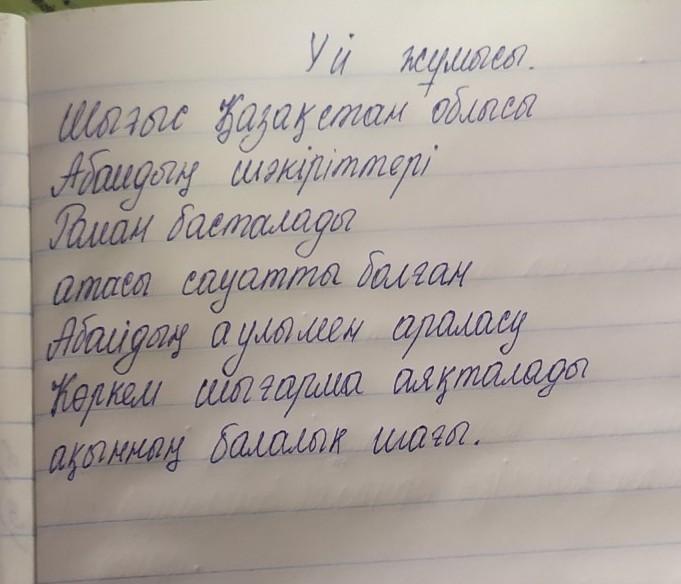 Үй жұмысы.
Шығыс Қазақстан облысы
Абайдың шәкірттері
Роман басталады
атасы сауатты болған
Абайдың ауылымен араласу
Көркем шығарма аяқталады
ақынның балалық шағы.